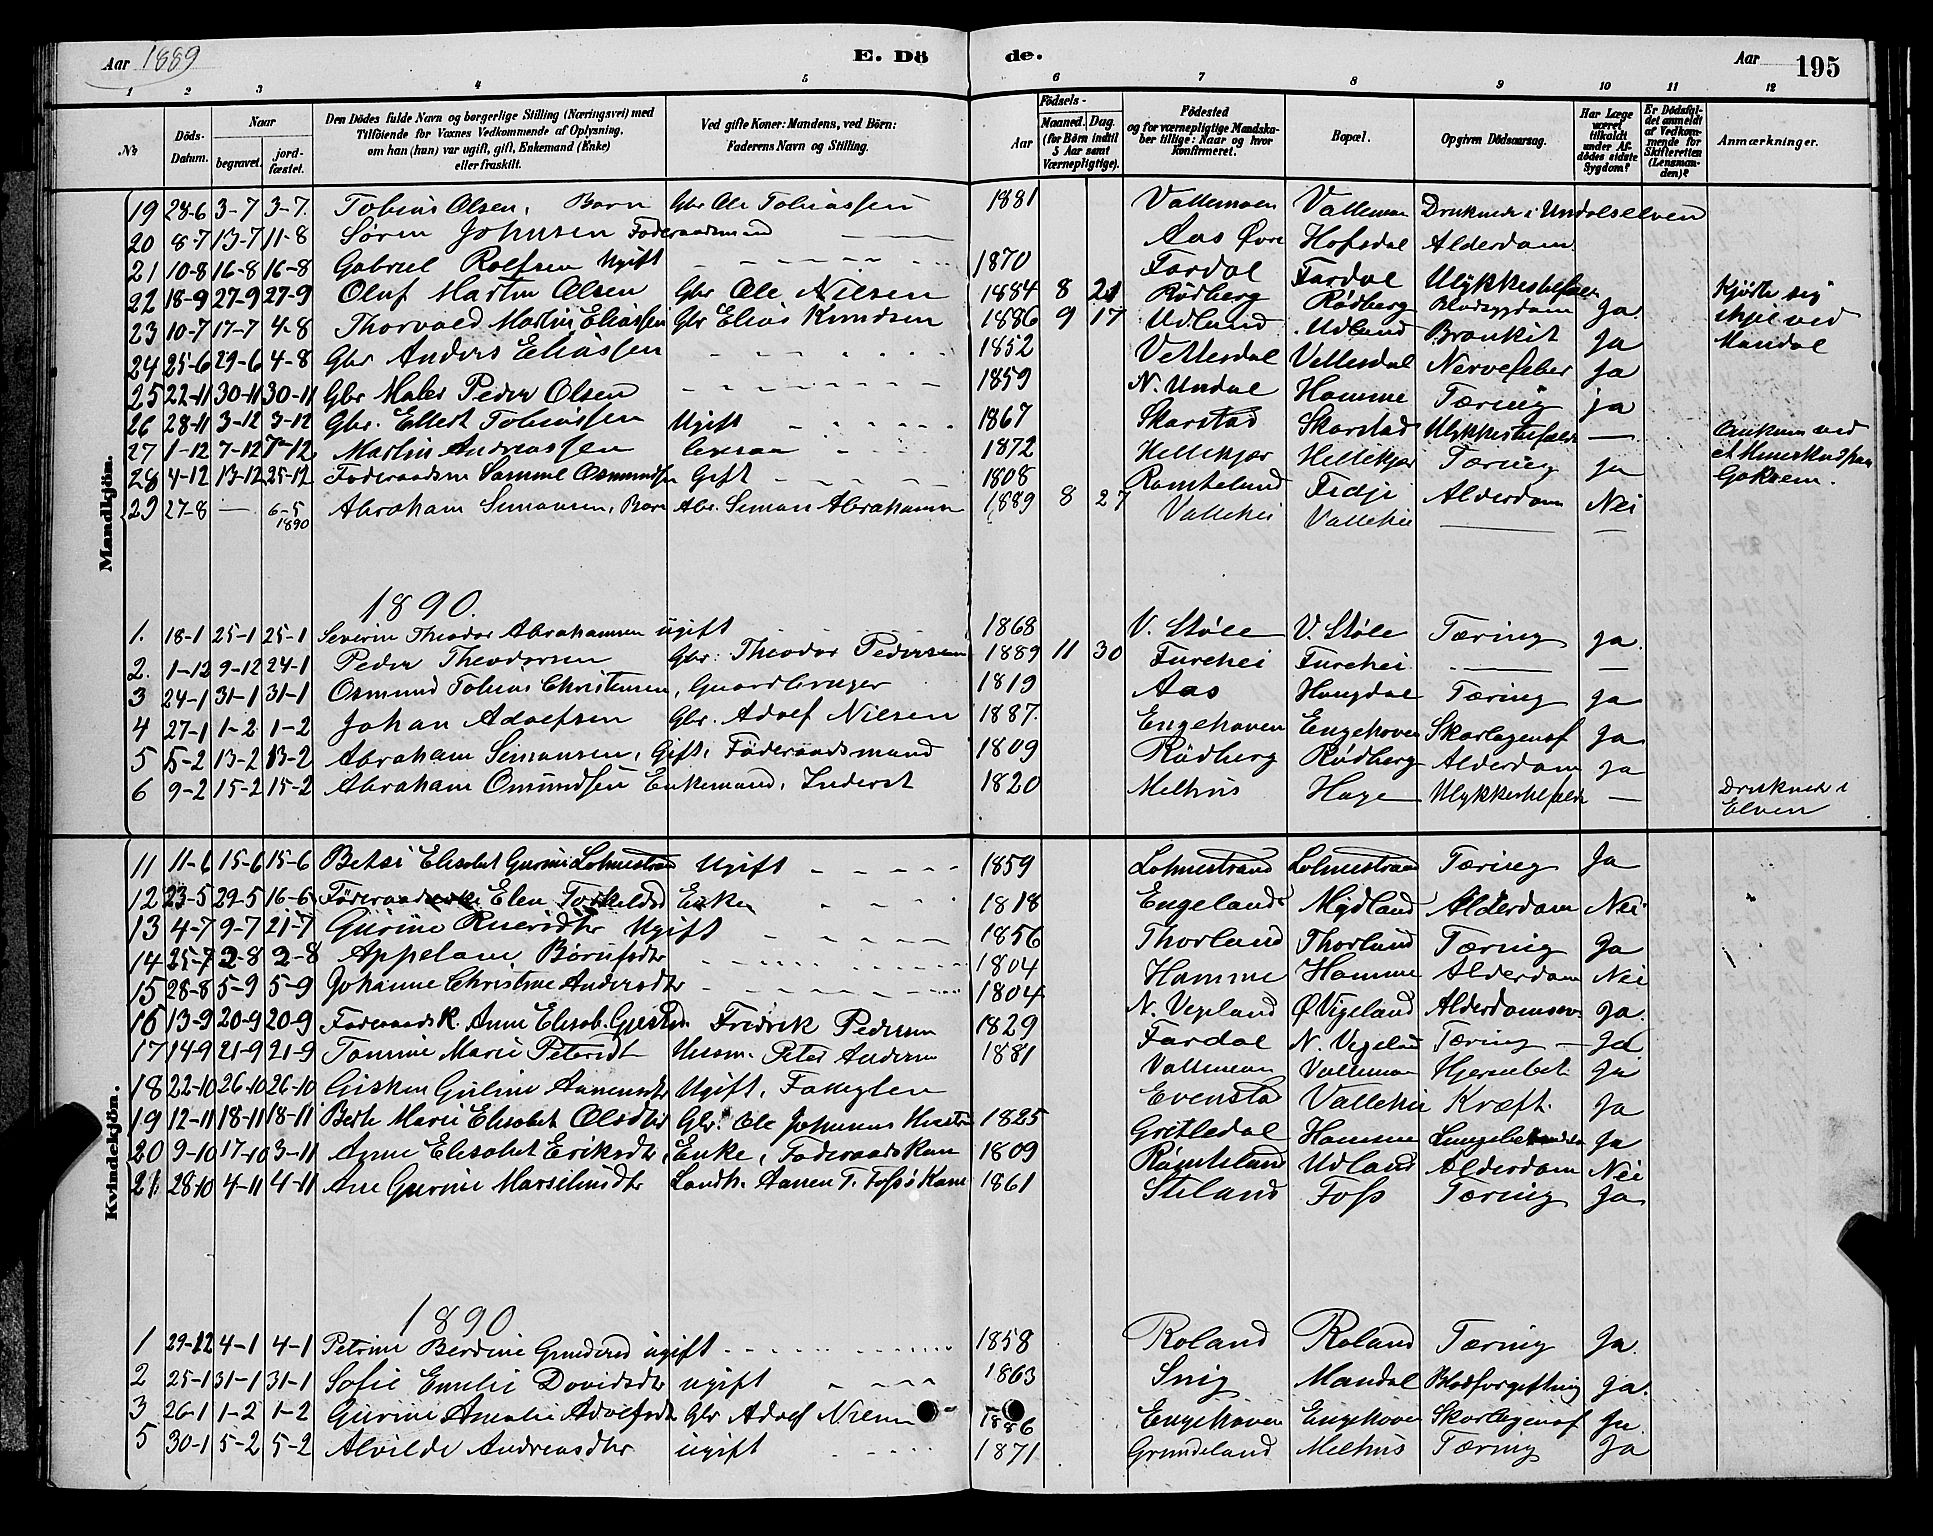 Aar 1889 E. Dö de. Aar 195
1 2 3 4 5 6 7 8 9 10 11 12
No Döds-Datum. Naar begravet. jordfæstet. Den Dödes fulde Navn og borgerlige Stilling (Næringsvei) med Tilföiende for Voxnes Vedkommende af Oplysning, om han (hun) var ugift, gift, Enkemand (Enke) eller fraskilt. Ved gifte Koner: Mandens, ved Börn: Faderens Navn og Stilling. Födsels- Aar Maaned. Dag. (for Börn indtil 5 Aar samt Værnepligtige). Födested og for værnepligtige Mandskaber tillige: Naar og hvor konfirmeret. Bopæl. Opgiven Dödsaarsag. Har Læge været tilkaldt under Afdödes sidste Sygdom? Er Dödsfaldet anmeldt af Vedkommende for Skifteretten (Lensmanden)? Anmærkninger.
Mandkjön.
19 28-6 3-7 3-7. Tobias Olsen, Barn Gbr Ole Tobiassen 1881 Vallemoen Vallemoen Druknede i Undalselven
20 8-7 13-7 11-8 Søren Johnsen Føderaadsmand Aas Øvre Hofsdal Alderdom
21 10-8 16-8 16-8 Gabriel Rolfsen Ugift 1870 Fardal Fardal Ulykkestilfælde Kjørte sig
22 18-9 27-9 27-9 Oluf Martin Olsen Gbr Ole Nilsen 1884 8 21 Rødberg Rødberg Blodsygdom Ja ihjel ved
23 10-7 17-7 4-8 Thorvald Martin Eliassen Gbr Elias Knudsen 1886 9 17 Udland Udland Bronkit Ja Mandal
24 25-6 29-6 4-8 Gbr Anders Eliassen 1852 Vettesdal Vettesdal Nervefeber Ja
25 22-11 30-11 30-11 Gbr Maler Peder Olsen 1859 N. Undal Homme Tæring ja
26 28-11 3-12 3-12 Gbr. Ellert Tobiassen Ugift 1867 Skarstad Skarstad Ulykkestilfælde — Omkom ved
27 1-12 7-12 7-12 Martin Andreassen 1872 Hellekjær Hellekjær Tæring ja
28 4-12 13-12 25-12 Føderaadsm Samuel Osmundsen Gift 1808 Romteland Fidje Alderdom Nei
29 27-8 — 6-5 1890 Abraham Simonsen, Barn Abr. Simon Abrahamsen 1889 8 27 Vallehei Vallehei — —
1890.
1. 18-1 25-1 25-1 Severin Theodor Abrahamsen ugift 1868 V. Støle V. Støle Tæring ja.
2. 1-12 9-12 24-1 Peder Theodorsen Gbr. Theodor Pedersen 1889 11 30 Furehei Furehei — —
3 24-1 31-1 31-1 Osmund Tobias Christensen, Gaardbruger 1819 Aas Haugdal Tæring ja
4 27-1 1-2 1-2 Johan Adolfsen Gbr. Adolf Nilsen 1887. Engehaven Engehoven Skarlagensf Ja
5 5-2 13-2 13-2 Abraham Simonsen, Gift, Føderaadsmand 1809 Rødberg Rødberg Alderdom ja
6 9-2 15-2 15-2 Abraham Osmundsen Enkemand, Inderst 1820 Melhus Hage Ulykkestilfælde — Druknede i
Elven
Kvindekjön.
11 11-6 15-6 15-6 Betsi Elisabet Gurine Lohnestrand Ugift 1859 Lohnestrand Lohnestrand Tæring Ja
12 23-5 29-5 16-6 Føderaadsenke Elen Torkelsd Enke 1818 Engeland Mydland Alderdom Nei
13 4-7 9-7 21-7 Gurine Ugift 1856 Thorland Thorland Tæring Ja
14 25-7 2-8 2-8 Appelone Børufsdtr 1804 Homme Homme Alderdom Nei
15 28-8 5-9 5-9 Johanne Christine Andersdtr 1804 N. Vegeland Ø Vigeland Alderdomssv. Ja.
16 13-9 20-9 20-9 Føderaads K. Anne Elisab. Fredrik Pedersen 1829 Fardal N. Vegeland Tæring — Ja
17 14-9 21-9 21-9 Tomine Marie Petersdt Husm. Peter Andersen 1881 Vallemoen Vallemoen Hjernebet. Ja
18 22-10 26-10 26-10 Gisken Guline Ugift, Evenstad Vallehei Kræft. Ja
19 12-11 18-11 18-11 Berte Marie Elisabet Olsdtr Gbr. Ole Johannes Hustru 1825 Gritledal Homme Lungebetændelse Ja
20 9-10 17-10 3-11 Anne Elisabet Eriksdtr, Enke, Føderaadskone 1809 Romteland Udland Alderdom Nei
21. 28-10 4-11 4-11 Ane Gurine Marselinsdtr Landh. Aanen T. Foss's Kone 1861 Stiland Foss Tæring Ja
1890
1 29-12 4-1 4-1 Petrine Berdine ugift 1858 Roland Roland Tæring Ja.
2 25-1 31-1 31-1 Sofie Emilie Davidsdtr ugift 1863 Snig Mandal Blodforgiftning Ja.
3 26-1 1-2 1-2 Gurine Amalie Adolfsdtr Gbr Adolf Nilsen 1886 Engehaven Engehoven Skarlagensf Ja
5 30-1 5-2 5-2 Alvilde Andreasdtr ugift 1871 Grundeland Melhus Tæring Ja